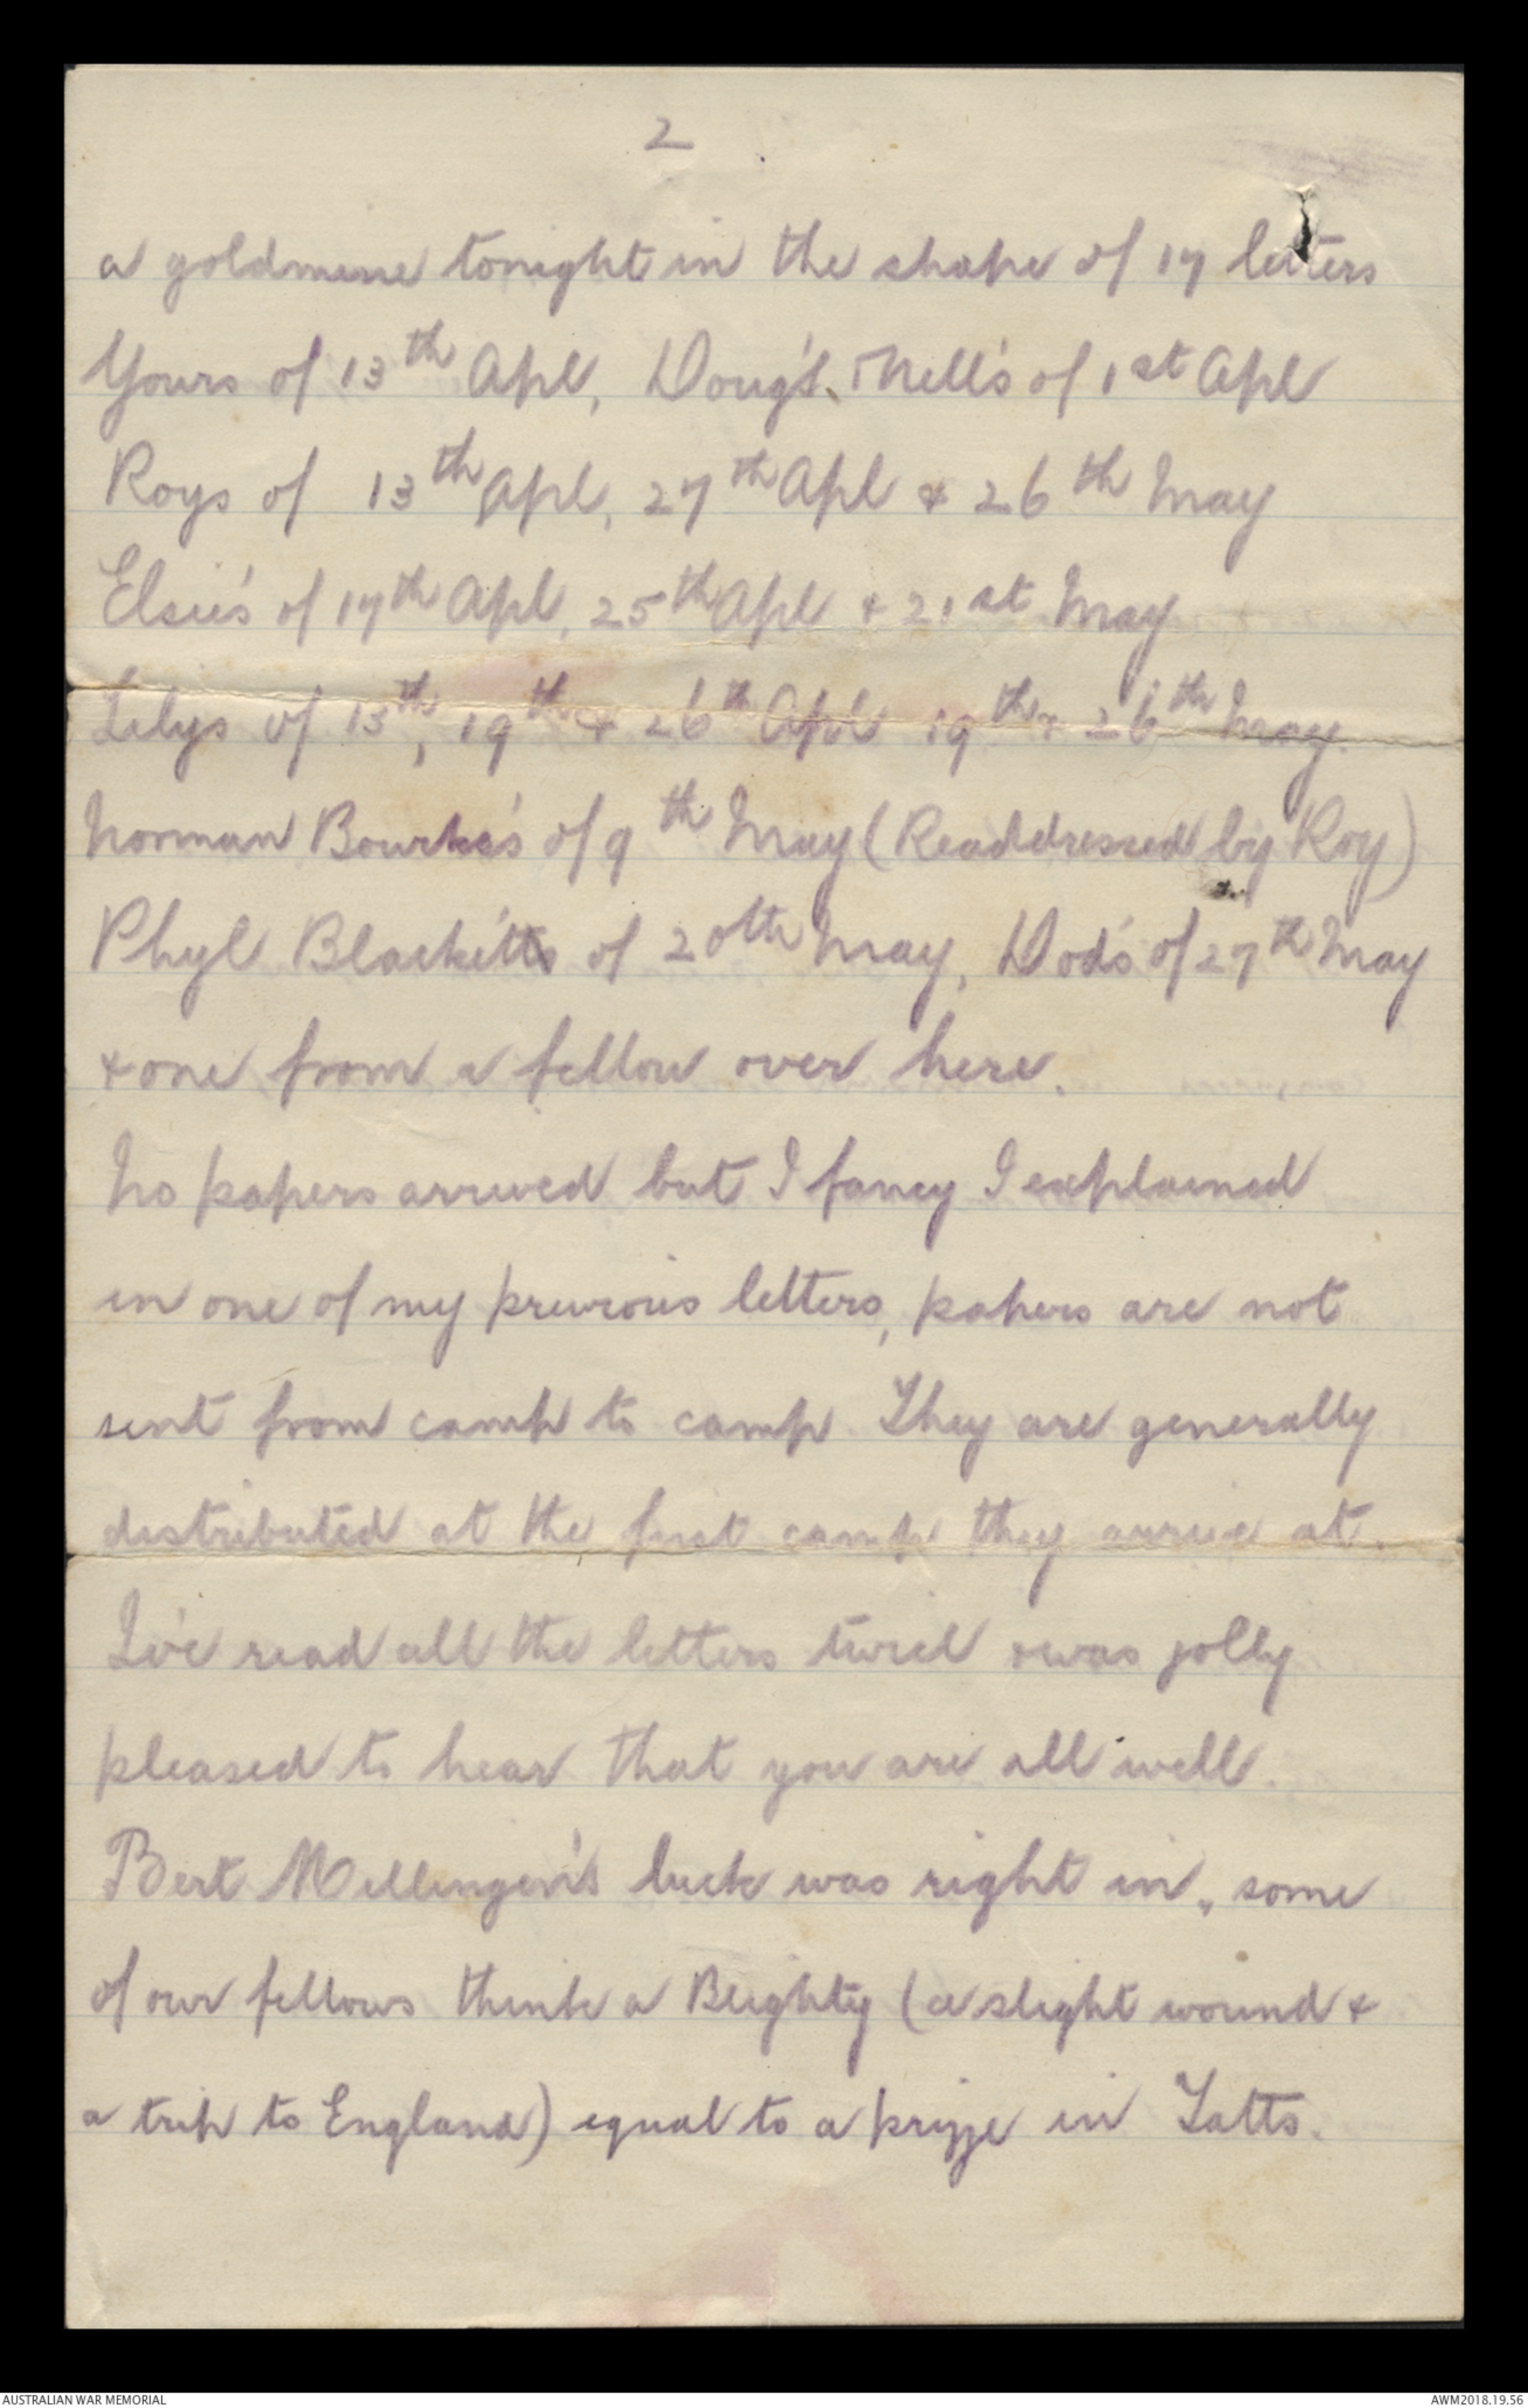 2
a goldmine tonight in the shape of 17 letters
Yours of 13th Apl, Doug's. Nell's of 1st Apl
Roys of 13th Apl, 27th Apl & 26th May
Elsie's of 17th Apl, 25th Apl & 21st May
Lilys of 13th, 19th & 26th Apl 19th & 26th May.
Norman Bourke's of 9th May (Readdressed by Roy)
Phyl Blackett's of 20th May, Dod's of 27th May
& one from a fellow over here.
No papers arrived but I fancy I explained
in one of my previous letters, papers are not
sent from camp to camp. They are generally
distributed at the first camp they arrive at.
I've read all the letters twice & was jolly
pleased to hear that you are all well.
Bert Mellingen's luck was right in, some
of our fellows think a Blighty (a slight wound &
a trip to England) equal to a prize in Tatts.
AUSTRALIAN WAR MEMORIAL
AWM2018.19.56